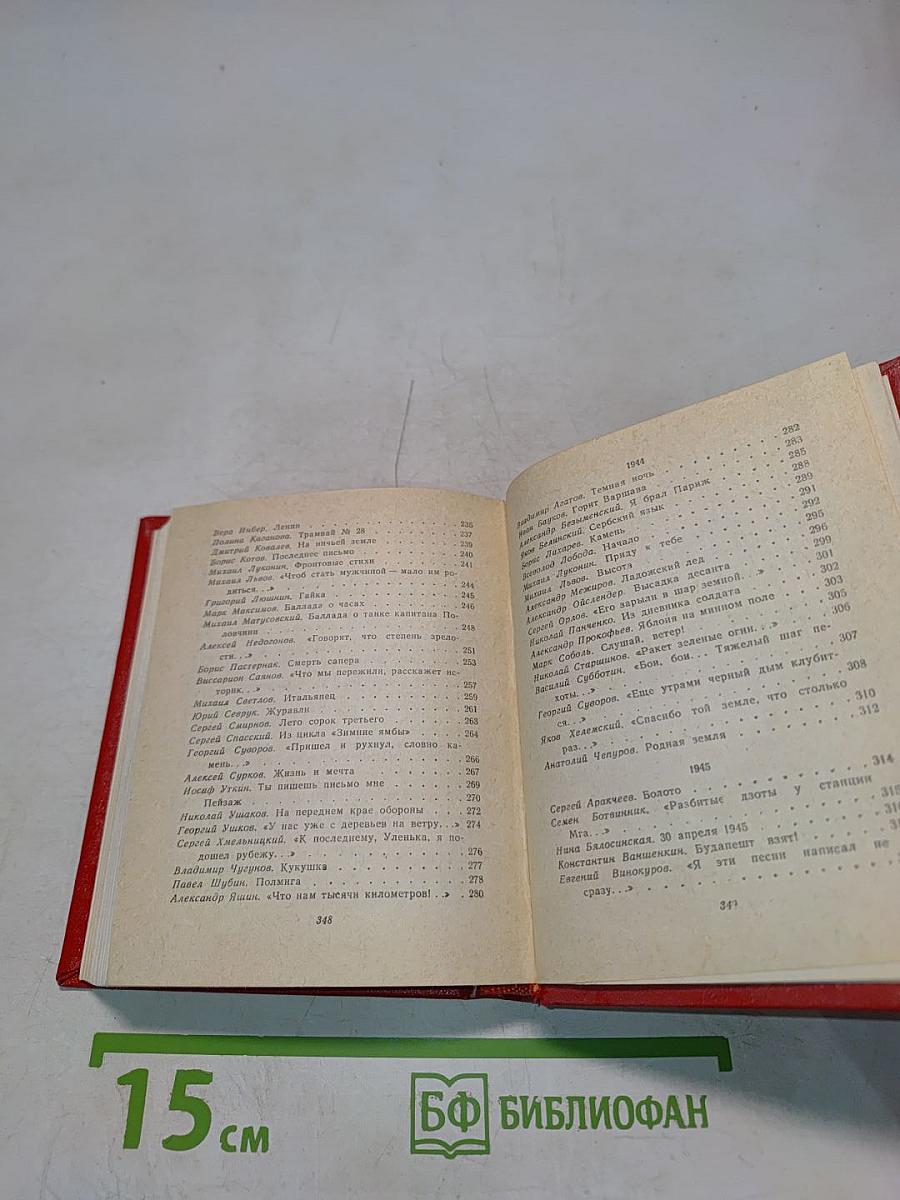 Вера Инбер. Ленин . . . . . . . . . . . . . . 235
Полина Каганова. Трамвай № 28 . . . . . . . . 237
Дмитрий Ковалев. На ничьей земле . . . . . . . 239
Борис Котов. Последнее письмо . . . . . . . . 240
Михаил Луконин. Фронтовые стихи . . . . . . . 241
Михаил Львов. «Чтоб стать мужчиной — мало им ро-
диться. . .» . . . . . . . . . . . . . . 244
Григорий Люшнин. Гайка . . . . . . . . . . . 245
Марк Максимов. Баллада о часах . . . . . . . . 246
Михаил Матусовский. Баллада о танке капитана По-
ловчини . . . . . . . . . . . . . . . 248
Алексей Недогонов. «Говорят, что степень зрело-
сти. . .» . . . . . . . . . . . . . . . 251
Борис Пастернак. Смерть сапера . . . . . . . . 253
Виссарион Саянов. «Что мы пережили, расскажет ис-
торик. . .» . . . . . . . . . . . . . . 257
Михаил Светлов. Итальянец . . . . . . . . . . 259
Юрий Севрук. Журавли . . . . . . . . . . . . 261
Сергей Смирнов. Лето сорок третьего . . . . . . 263
Сергей Спасский. Из цикла «Зимние ямбы» . . . . 264
Георгий Суворов. «Пришел и рухнул, словно ка-
мень. . .» . . . . . . . . . . . . . . 266
Алексей Сурков. Жизнь и мечта . . . . . . . . 267
Иосаф Уткин. Ты пишешь письмо мне . . . . . . 269
Пейзаж . . . . . . . . . . . . . . . 270
Николай Ушаков. На переднем крае обороны . . . . 272
Георгий Ушков. «У нас уже с деревьев на ветру. . .» 274
Сергей Хмельницкий. «К последнему, Уленька, я по-
дошел рубежу. . .» . . . . . . . . . . . 276
Владимир Чугунов. Кукушка . . . . . . . . . . 277
Павел Шубин. Полмига . . . . . . . . . . . . 278
Александр Яшин. «Что нам тысячи километров! . .» . 280
348
1944
Владимир Агатов. Темная ночь . . . . . . . . . 282
Иван Бауков. Горит Варшава . . . . . . . . . . 283
Александр Безыменский. Я брал Париж . . . . . . 285
Яков Белинский. Сербский язык . . . . . . . . 288
Борис Лихарев. Камень . . . . . . . . . . . . 289
Всеволод Лобода. Начало . . . . . . . . . . . 291
Михаил Луконин. Приду к тебе . . . . . . . . . 292
Михаил Львов. Высота . . . . . . . . . . . . 295
Александр Межиров. Ладожский лед . . . . . . . 296
Александр Ойслендер. Высадка десанта . . . . . . 299
Сергей Орлов. «Его зарыли в шар земной. . .» . . . 301
Николай Панченко. Из дневника солдата . . . . . 302
Александр Прокофьев. Яблоня на минном поле . . . 303
Марк Соболь. Слушай, ветер! . . . . . . . . . 305
Николай Старшинов. «Ракет зеленые огни. . .» . . . 306
Василий Субботин. «Бои, бои. . . Тяжелый шаг пе-
хоты. . .» . . . . . . . . . . . . . . 307
Георгий Суворов. «Еще утрами черный дым клубит-
ся. . .» . . . . . . . . . . . . . . . 308
Яков Хелемский. «Спасибо той земле, что столько
раз. . .» . . . . . . . . . . . . . . . 310
Анатолий Чепуров. Родная земля . . . . . . . . 312
1945
Сергей Аракчеев. Болото . . . . . . . . . . . 314
Семен Ботвинник. «Разбитые дзоты у станции
Мга. . .» . . . . . . . . . . . . . .
Нина Бялосинская. 30 апреля 1945 . . . . . . .
Константин Ваншенкин. Будапешт взят! . . . . . .
Евгений Винокуров. «Я эти песни написал не
сразу. . .» . . . . . . . . . . . . . .
349
15 см
БФ БИБЛИОФАН